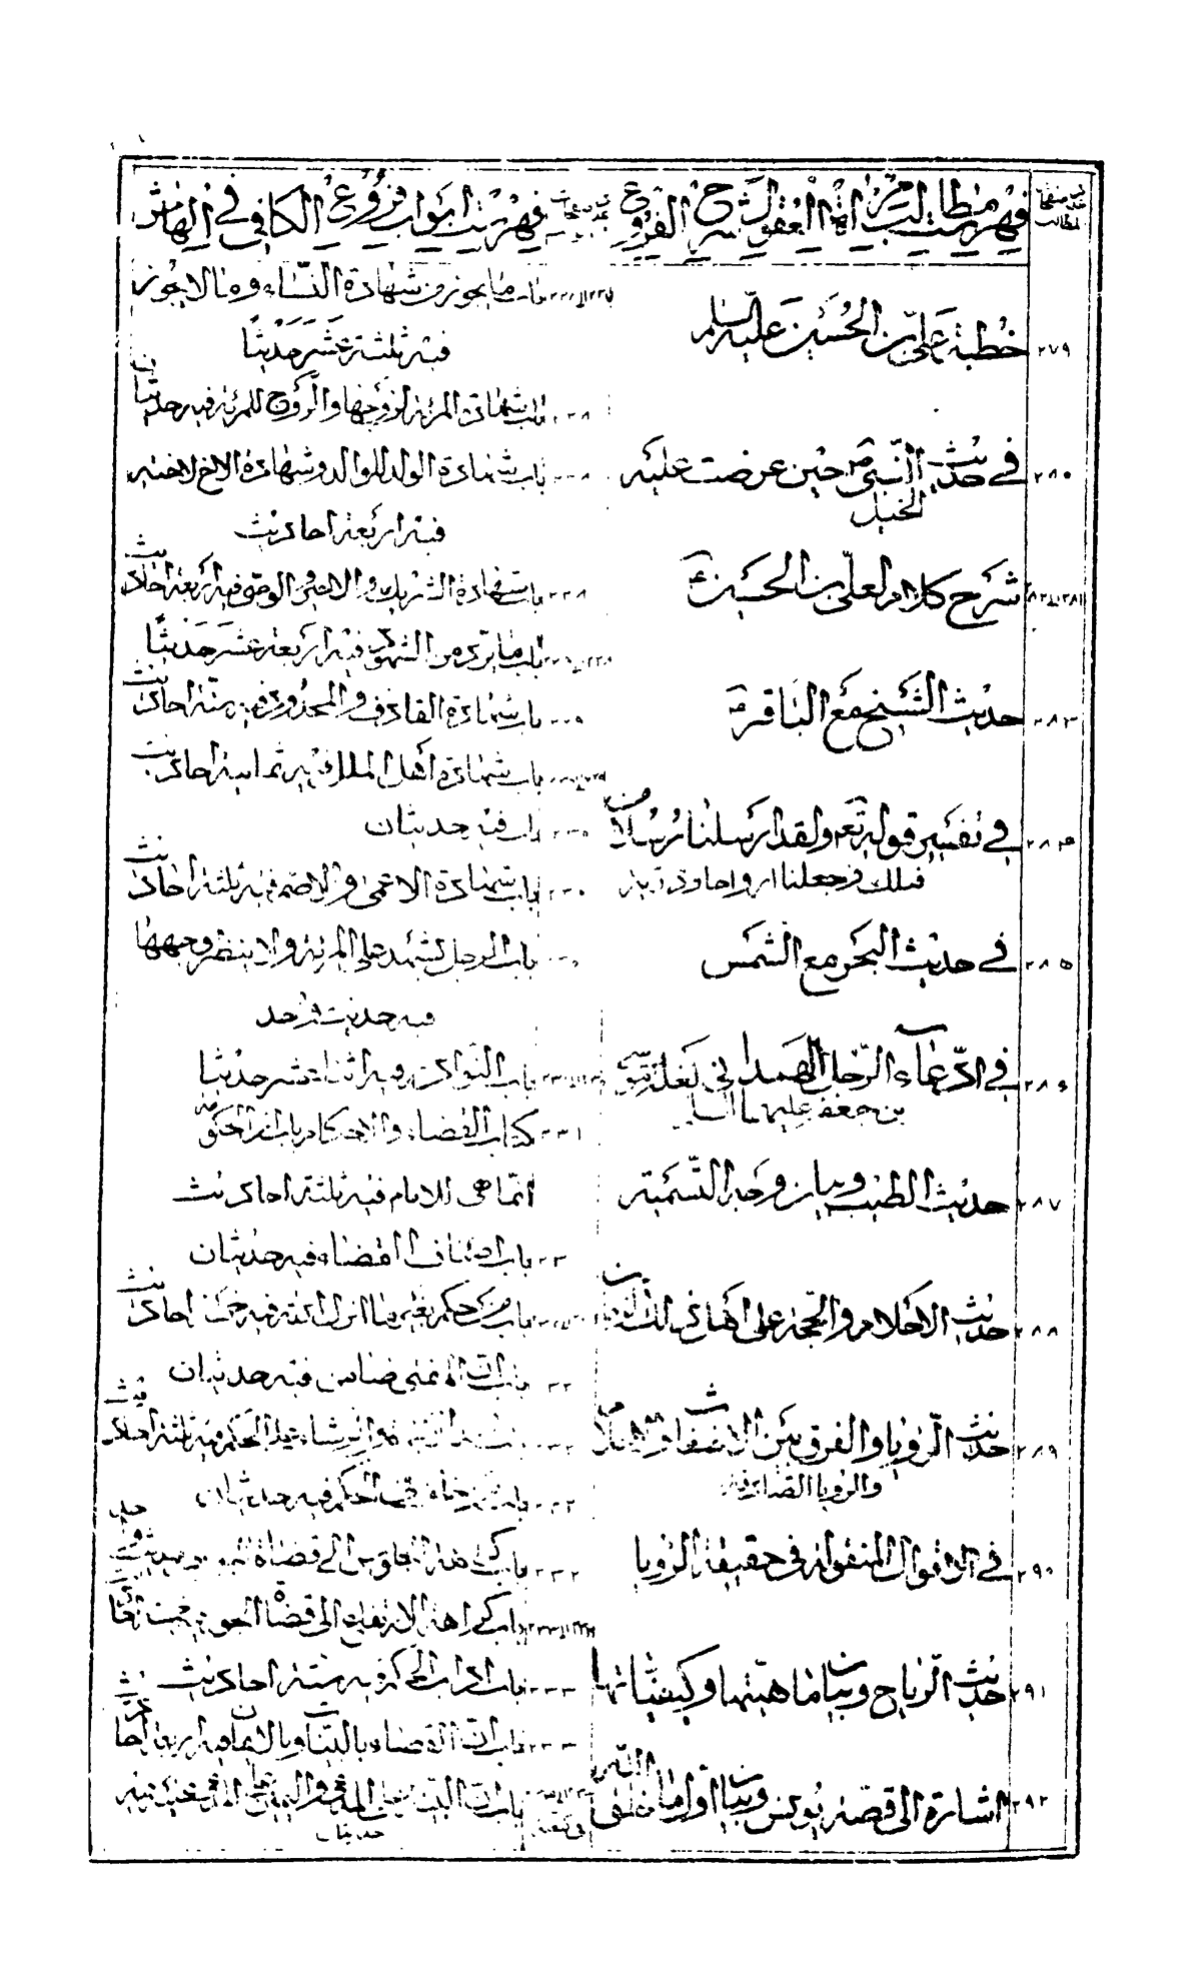 فهرست مطالب مرآة العقول شرح الفروع
فهرست ابواب فروع الكافي في الهامش
٢٧٩ خطبة علي بن الحسين عليه السلام
٢٨٠ في حديث النبي ص حين عرضت عليه
الخيل
شرح كلام لعلي بن الحسين ع
٢٨٣ حديث الشيخ مع الباقر ع
٢٨٤ في تفسير قوله تعه ولقد ارسلنا رسلا من
قبلك وجعلنا ازواجا وذرية
٢٨٥ في حديث البحر مع الشمس
٢٨٦ في ادعاء الرجل الهمداني بغلة موسى
بن جعفر عليهما السلام
٢٨٧ حديث الطبيب وبيان وجه التسمية
٢٨٨ حديث الاحلام والحجة على اهل ذلك الزمان
٢٨٩ حديث الرؤيا والفرق بين
والرويا الصادقة
٢٩٠ في الاقوال المنقولة في حقيقة الرؤيا
٢٩١ حديث الرياح وبيان ماهيتها وكيفياتها
٢٩٢ اشارة الى قصة يونس وبيان اول ما خلق الله
باب ما يجوز من شهادة النساء وما لا يجوز
فيه ثلثة عشر حديثا
باب شهادة المرئة لزوجها والزوج للمرئة فيه حديثان
باب شهادة الولد للوالد وشهادة الاخ لاخيه
فيه اربعة احاديث
٢٢٨ باب شهادة الشريك والاجير والوصي فيه اربعة احاديث
باب ما يرد من الشهود فيه اربعة عشر حديثا
باب شهادة القاذف والمحدود فيه ستة احاديث
باب شهادة اهل الملل فيه ثمانية احاديث
٢٣٠ باب فيه حديثان
٢٣٠ باب شهادة الاعمى والاصم فيه ثلثة احاديث
باب الرجل يشهد على المرئة ولا ينظر وجهها
فيه حديث واحد
باب النوادر وفيه اثنا عشر حديثا
٢٣١ كتاب القضاء والاحكام باب ان الحكومة
انما هي للامام فيه ثلثة احاديث
باب اصناف القضاء فيه حديثان
باب من حكم بغير ما انزل الله فيه خمسة احاديث
باب ان المفتي ضامن فيه حديثان
باب اخذ الاجرة والرشاء على الحكم فيه ثلثة احاديث
باب من حاف في الحكم فيه حديثان
٢٣٢ باب كراهة الجلوس الى قضاة الجور
باب كراهة الارتفاع الى قضاة الجور
٢٣٣ باب ادب الحكم فيه ستة احاديث
٢٣٣ باب ان القضاء بالبينات والايمان فيه اربعة احاديث
باب ان البينة على المدعي واليمين على المدعى عليه فيه
حديثان